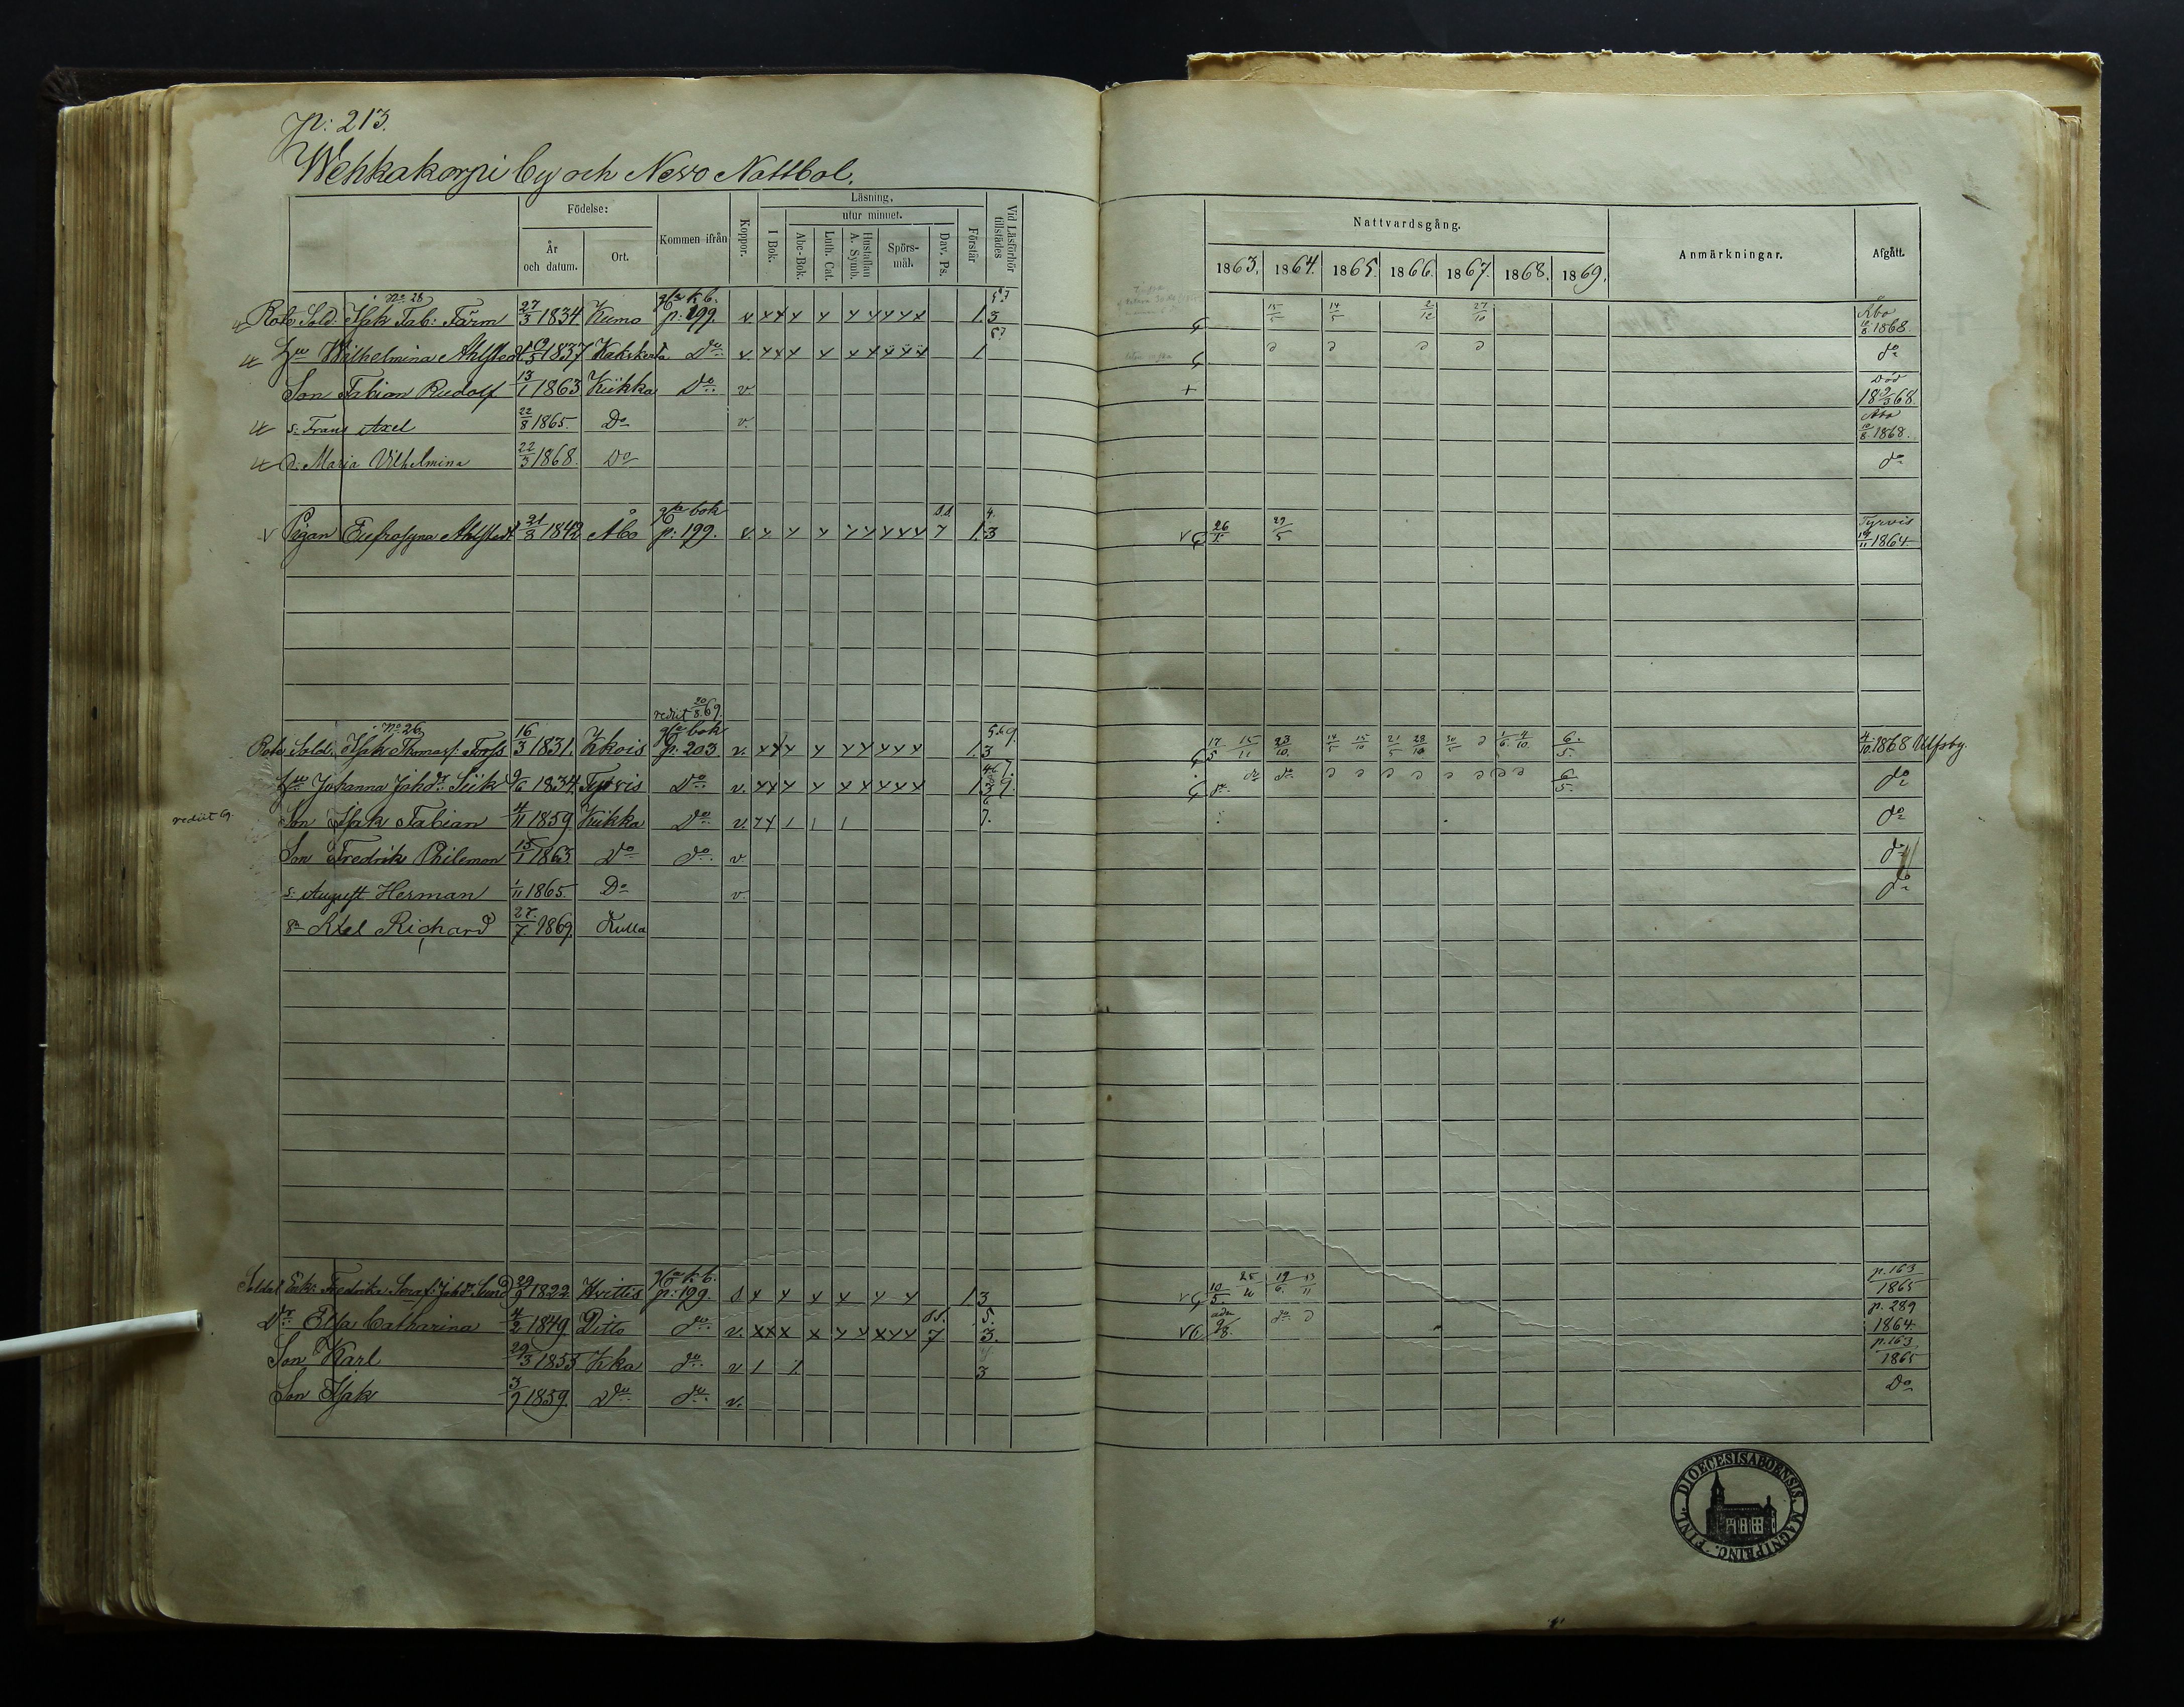 p: 213.
Wehkakorpi by och Nevo Nattbol.
Födelse: År och datum. Ort. Kommen ifrån Koppor. Läsning, I Bok. utur minnet. Abc-Bok. Luth. Cat. Hustaflan A. Symb. Spörs-mål. Dav. Ps. Förstår Vid Läsförhör tillstädes
Nattvardsgång. 1863. 1864. 1865. 1866. 1867. 1868. 1869. Anmärkningar. Afgått.
No 28
Rote Sold. Isak Fab: Färm 27/3 1834 Kumo p: 199. v. 1. 3 15/5 14/5 2/12 27/10 Åbo 10/8 1868.
Hu Wilhelmina Ahlstedt 1837 Kakskerta Do v. 1 do
Son Fabian Rudolf 13/1 1863 Kiikka Do v. + Död 1868.
s. Frans Axel 22/8 1865. Do v. Åbo 10/8 1868.
d. Maria Vilhelmina 22/3 1868. Do do
Pigan Eufrosyna Ahlstedt 1842 Åbo bok p: 199. v. 7 1. 3 26/ 29/5 Tyrvis 1864.
rediit 20/8 69.
No 26
Rote Sold. Isak Thomass: Forss 16/3 1831. Kkois bok p: 203 v. 1. 3 17/5 15/11 23/10. 14/5 15/10 21/5 28/10 6./5. 4/10. 1868 Ulfsby.
Hu Johanna Johdr: Siik 9/6 1834. Tyrvis Do v. 1. 3 6/5. do
rediit 69. Son Isak Fabian 4/11 1859 Kiikka Do v. 7. do
Son Fredrik Philemon 15/1 1863 Do do v do
s. August Herman 1/11 1865. Do v. do
sn Axel Richard 27./7. 1869. Kulla
Soldat Enk: Fredrika 1822 Hvittis p: 199. 1. 3 10/5. 25/ 19/6. 13/11 p. 163 1865
Dr Elsa Catharina 4/2 1849 Ditto do v. 7 5. 3. p. 289 1864.
Son Karl 29/3 1853 Kka do v 3 p. 163. 1865
Son Isak 3/9 1859. Do do v. Do
DIOECESIS ABOENSIS. MAGNI PRINC. FINL.